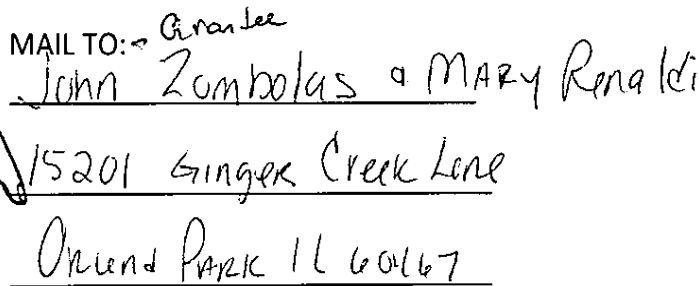 MAIL TO: - Grantee
John Zombolas & MARY Renaldi
15201 GINGER Creek Lane
Orland PARK IL 60467